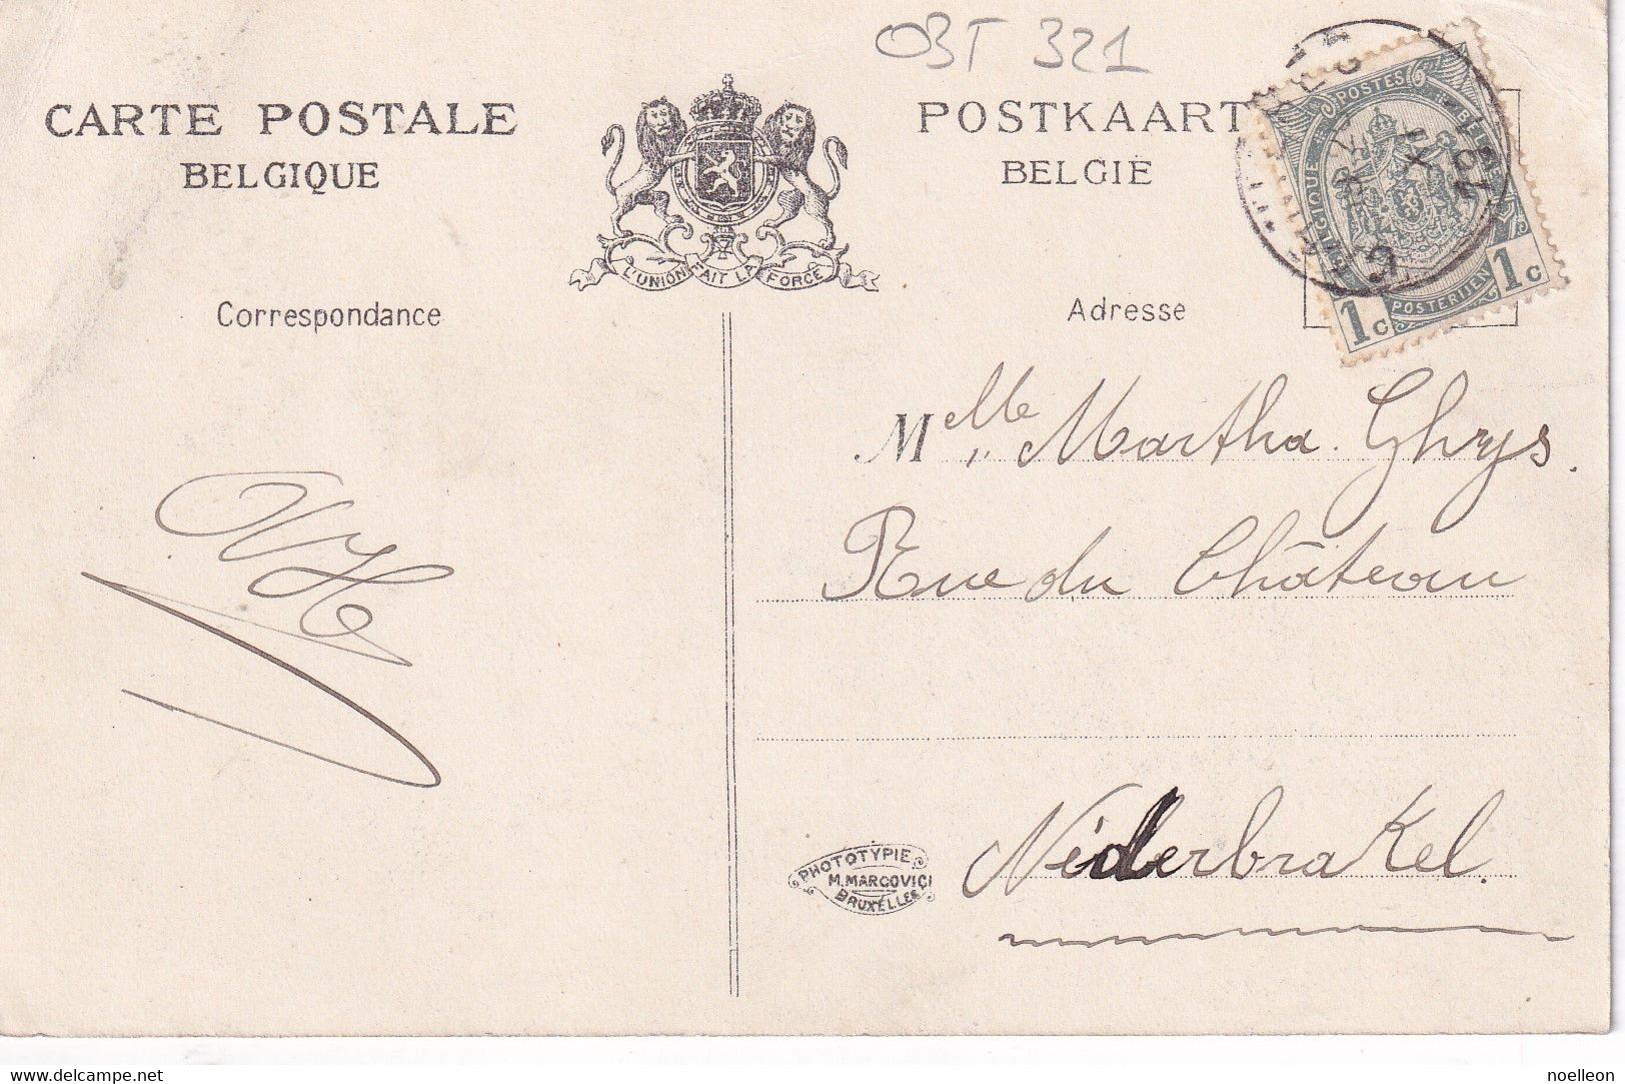 OBT 321
CARTE POSTALE
BELGIQUE
POSTKAART
BELGIË
L'UNION FAIT LA FORCE
POSTES
BELGIQUE
POSTERIJEN
1c 1c
Correspondance
Adresse
Melle Martha Ghys.
Rue du Château
Nederbrakel.
PHOTOTYPIE
M. MARCOVICI
BRUXELLES
delcampe.net
noelleon